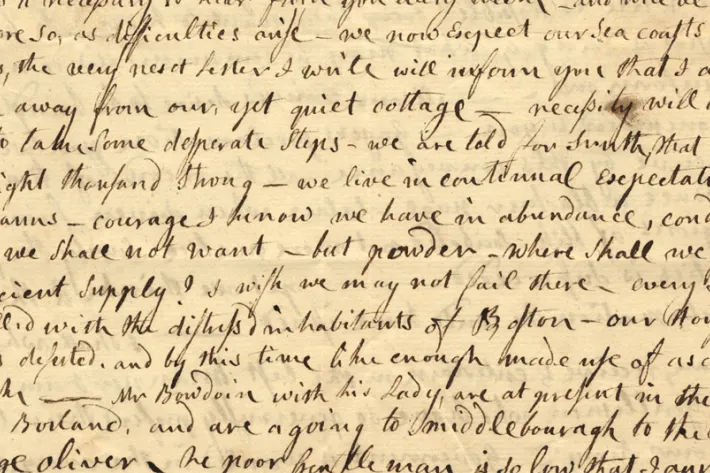 a necessity to hear from you every week — and will be
ere so, as difficulties arise — we now Expect our Sea coasts
s, the very next Letter I write will inform you that I a
away from our, yet quiet cottage — necessity will
to take Some desperate Steps — we are told for truth, that
ight thousand Strong — we live in continual Expectati
arms — courage I know we have in abundance, cond
we shall not want — but powder — where shall we
icient Supply? I wish we may not fail there — every
ll'd with the distress'd inhabitants of Boston — our
s deserted, and by this time like enough made use of as a
— Mr Bowdoin with his Lady, are at present in the
Borland, and are a going to Middlebouragh to the
ge oliver, he poor Gentleman is so low that I am